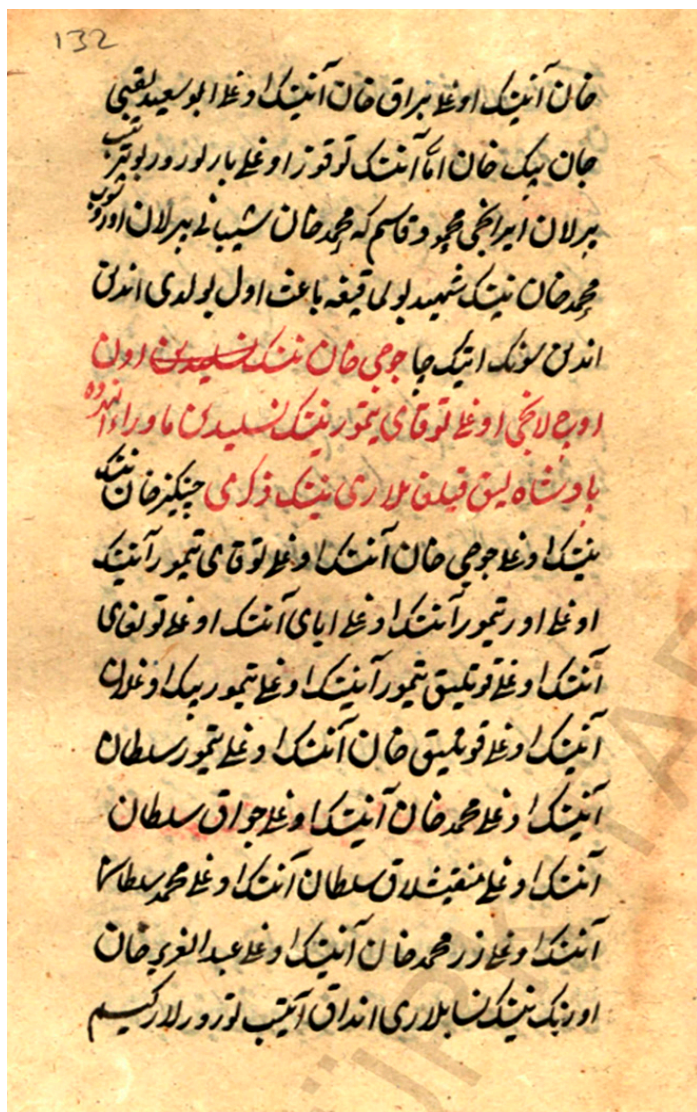 132
خان آنینک اوغلی براق خان آنینک اوغلی ابو سعید لقبی
جان بیک خان اما آنینک توقوز اوغلی بار تورور بو ترتیب
بیرلان ایرانجی محمود قاسم که محمد خان شیبانی بیرلان اوروشوب
محمد خان نینک شهید بولماقیغه باعث اول بولدی اندین
اندین سونک اتیک جا جوجی خان نینک نسلیدین اون
اوچ لانجی اوغلی توقای تیمور نینک نسلیدین ماوراءالنهرده
پادشاه لیق قیلغانلاری نینک ذکری چنکیز خان نینک
نینک اوغلی جوجی خان آنینک اوغلی توقای تیمور آنینک
اوغلی اورتیمور آنینک اوغلی ابای آنینک اوغلی تولغای
آنینک اوغلی قوتلیق تیمور آنینک اوغلی تیمور بیک اوغلان
آنینک اوغلی قوتلیق خان آنینک اوغلی تیمور سلطان
آنینک اوغلی محمد خان آنینک اوغلی جواق سلطان
آنینک اوغلی منقیشلاق سلطان آنینک اوغلی محمد سلطان
آنینک اوغلی زر محمد خان آنینک اوغلی عبد العزیز خان
اوزبک نینک نسابلاری انداق آیتیب تورورلار کیم